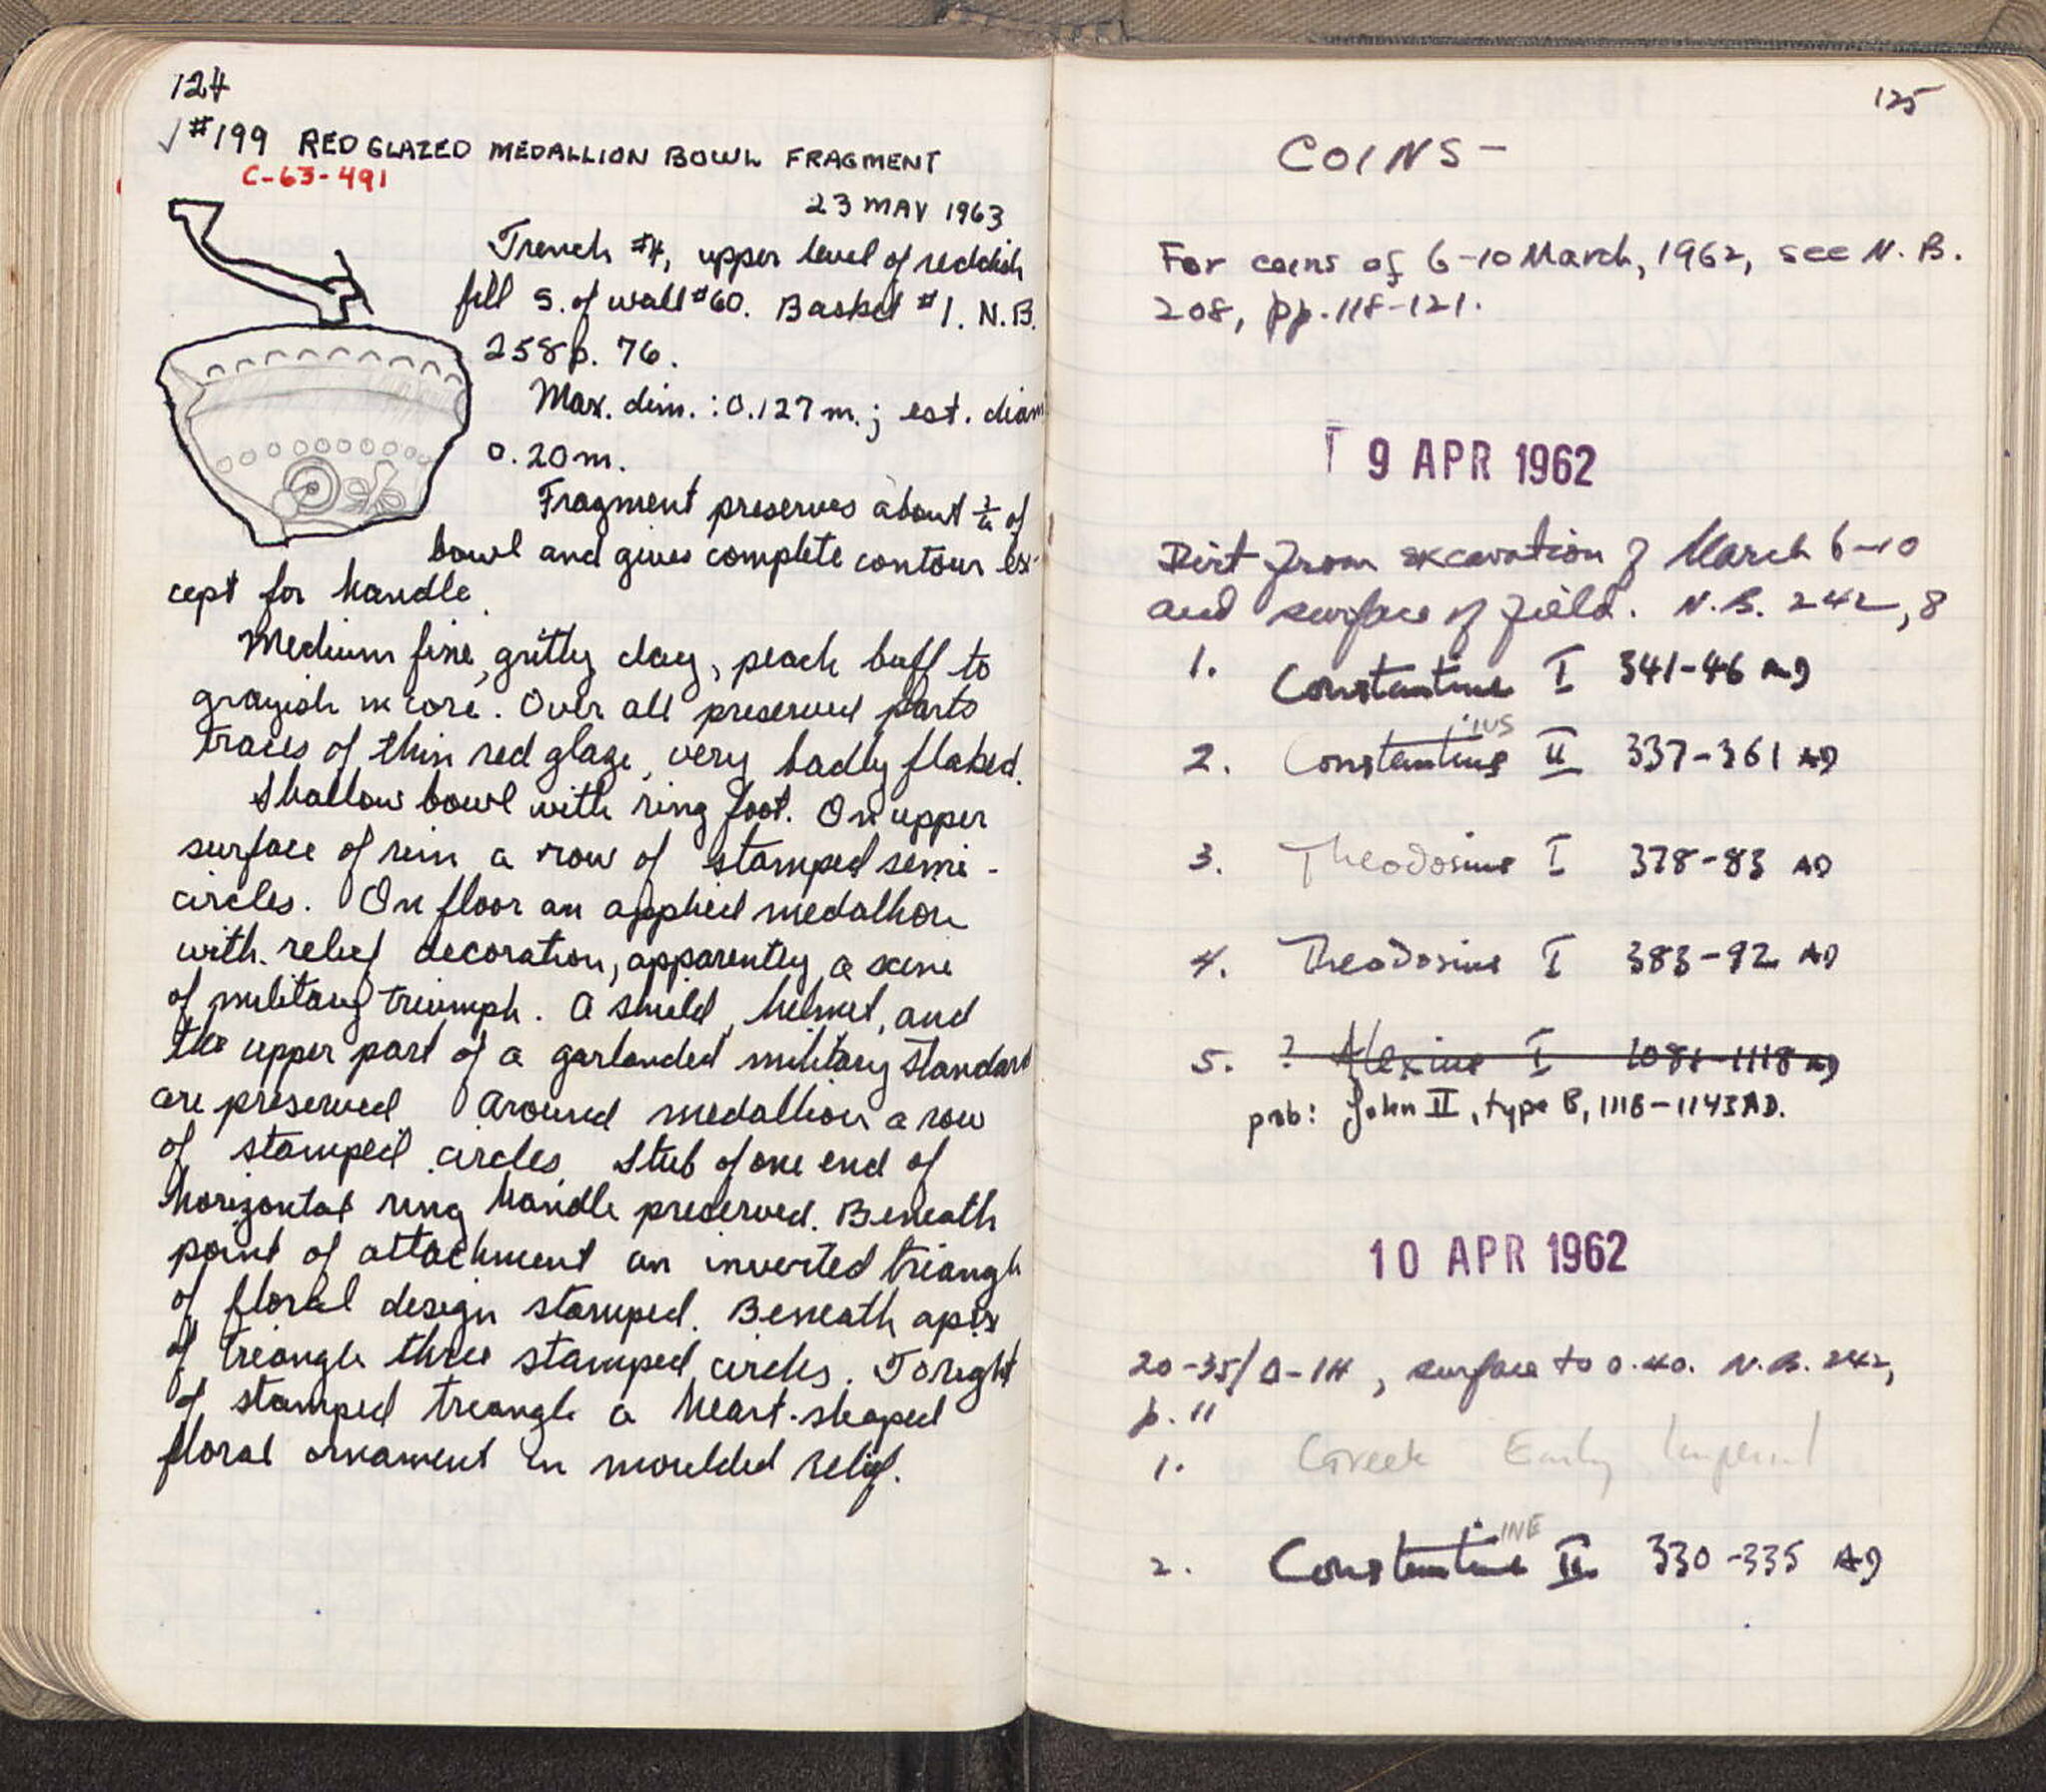 124
✓ #199 RED GLAZED MEDALLION BOWL FRAGMENT
C-63-491
23 MAY 1963
Trench #4, upper level of reddish
fill S. of wall #60. Basket #1. N.B.
258 p. 76.
Max. dim.: 0.127 m.; est. diam
0.20 m.
Fragment preserves about of
bowl and gives complete contour ex-
cept for handle.
Medium fine, gritty clay, peach buff to
grayish in core. Over all preserved parts
traces of thin red glaze, very badly flaked.
Shallow bowl with ring foot. On upper
surface of rim a row of stamped semi-
circles. On floor an applied medallion
with relief decoration, apparently a scene
of military triumph. A shield, helmet, and
the upper part of a garlanded military standard
are preserved. Around medallion a row
of stamped circles. Stub of one end of
horizontal ring handle preserved. Beneath
point of attachment an inverted triangle
of floral design stamped. Beneath apex
of triangle three stamped circles. To right
of stamped triangle a heart-shaped
floral ornament in moulded relief.
125
COINS -
For coins of 6-10 March, 1962, see N.B.
208, pp. 118-121.
9 APR 1962
Dirt from excavation of March 6-10
and surface of field. N.B. 242, 8
1. Constantine I 341-46 AD
ius
2. Constantius II 337-361 AD
3. Theodosius I 378-83 AD
4. Theodosius I 383-92 AD
5. ? Alexius I 1081-1118 AD
prob: John II, type B, 1118-1143 AD.
10 APR 1962
20-35/D-1H, surface to 0.40. N.B. 242,
p. 11
1. Greek Early Imperial
INE
2. Constantine II 330-335 AD